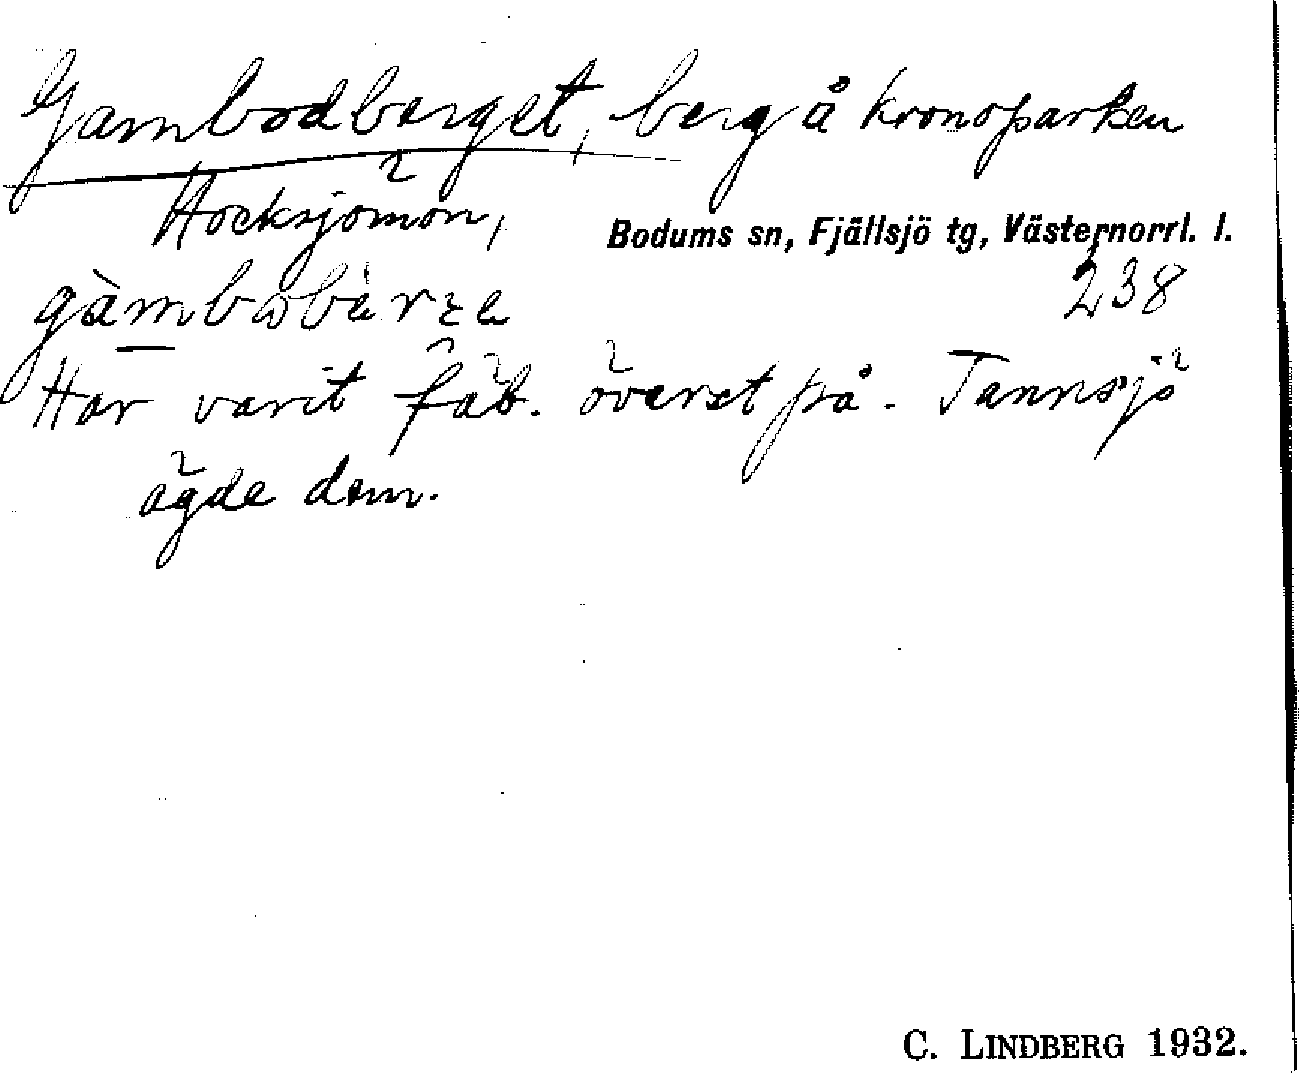 Gambodberget, berg å kronoparken
Hocksjömon,
Bodums sn, Fjällsjö tg, Västernorrl. l.
238
Har varit fäb. överst på. Tannsjö
ägde dem.
C. LINDBERG 1932.